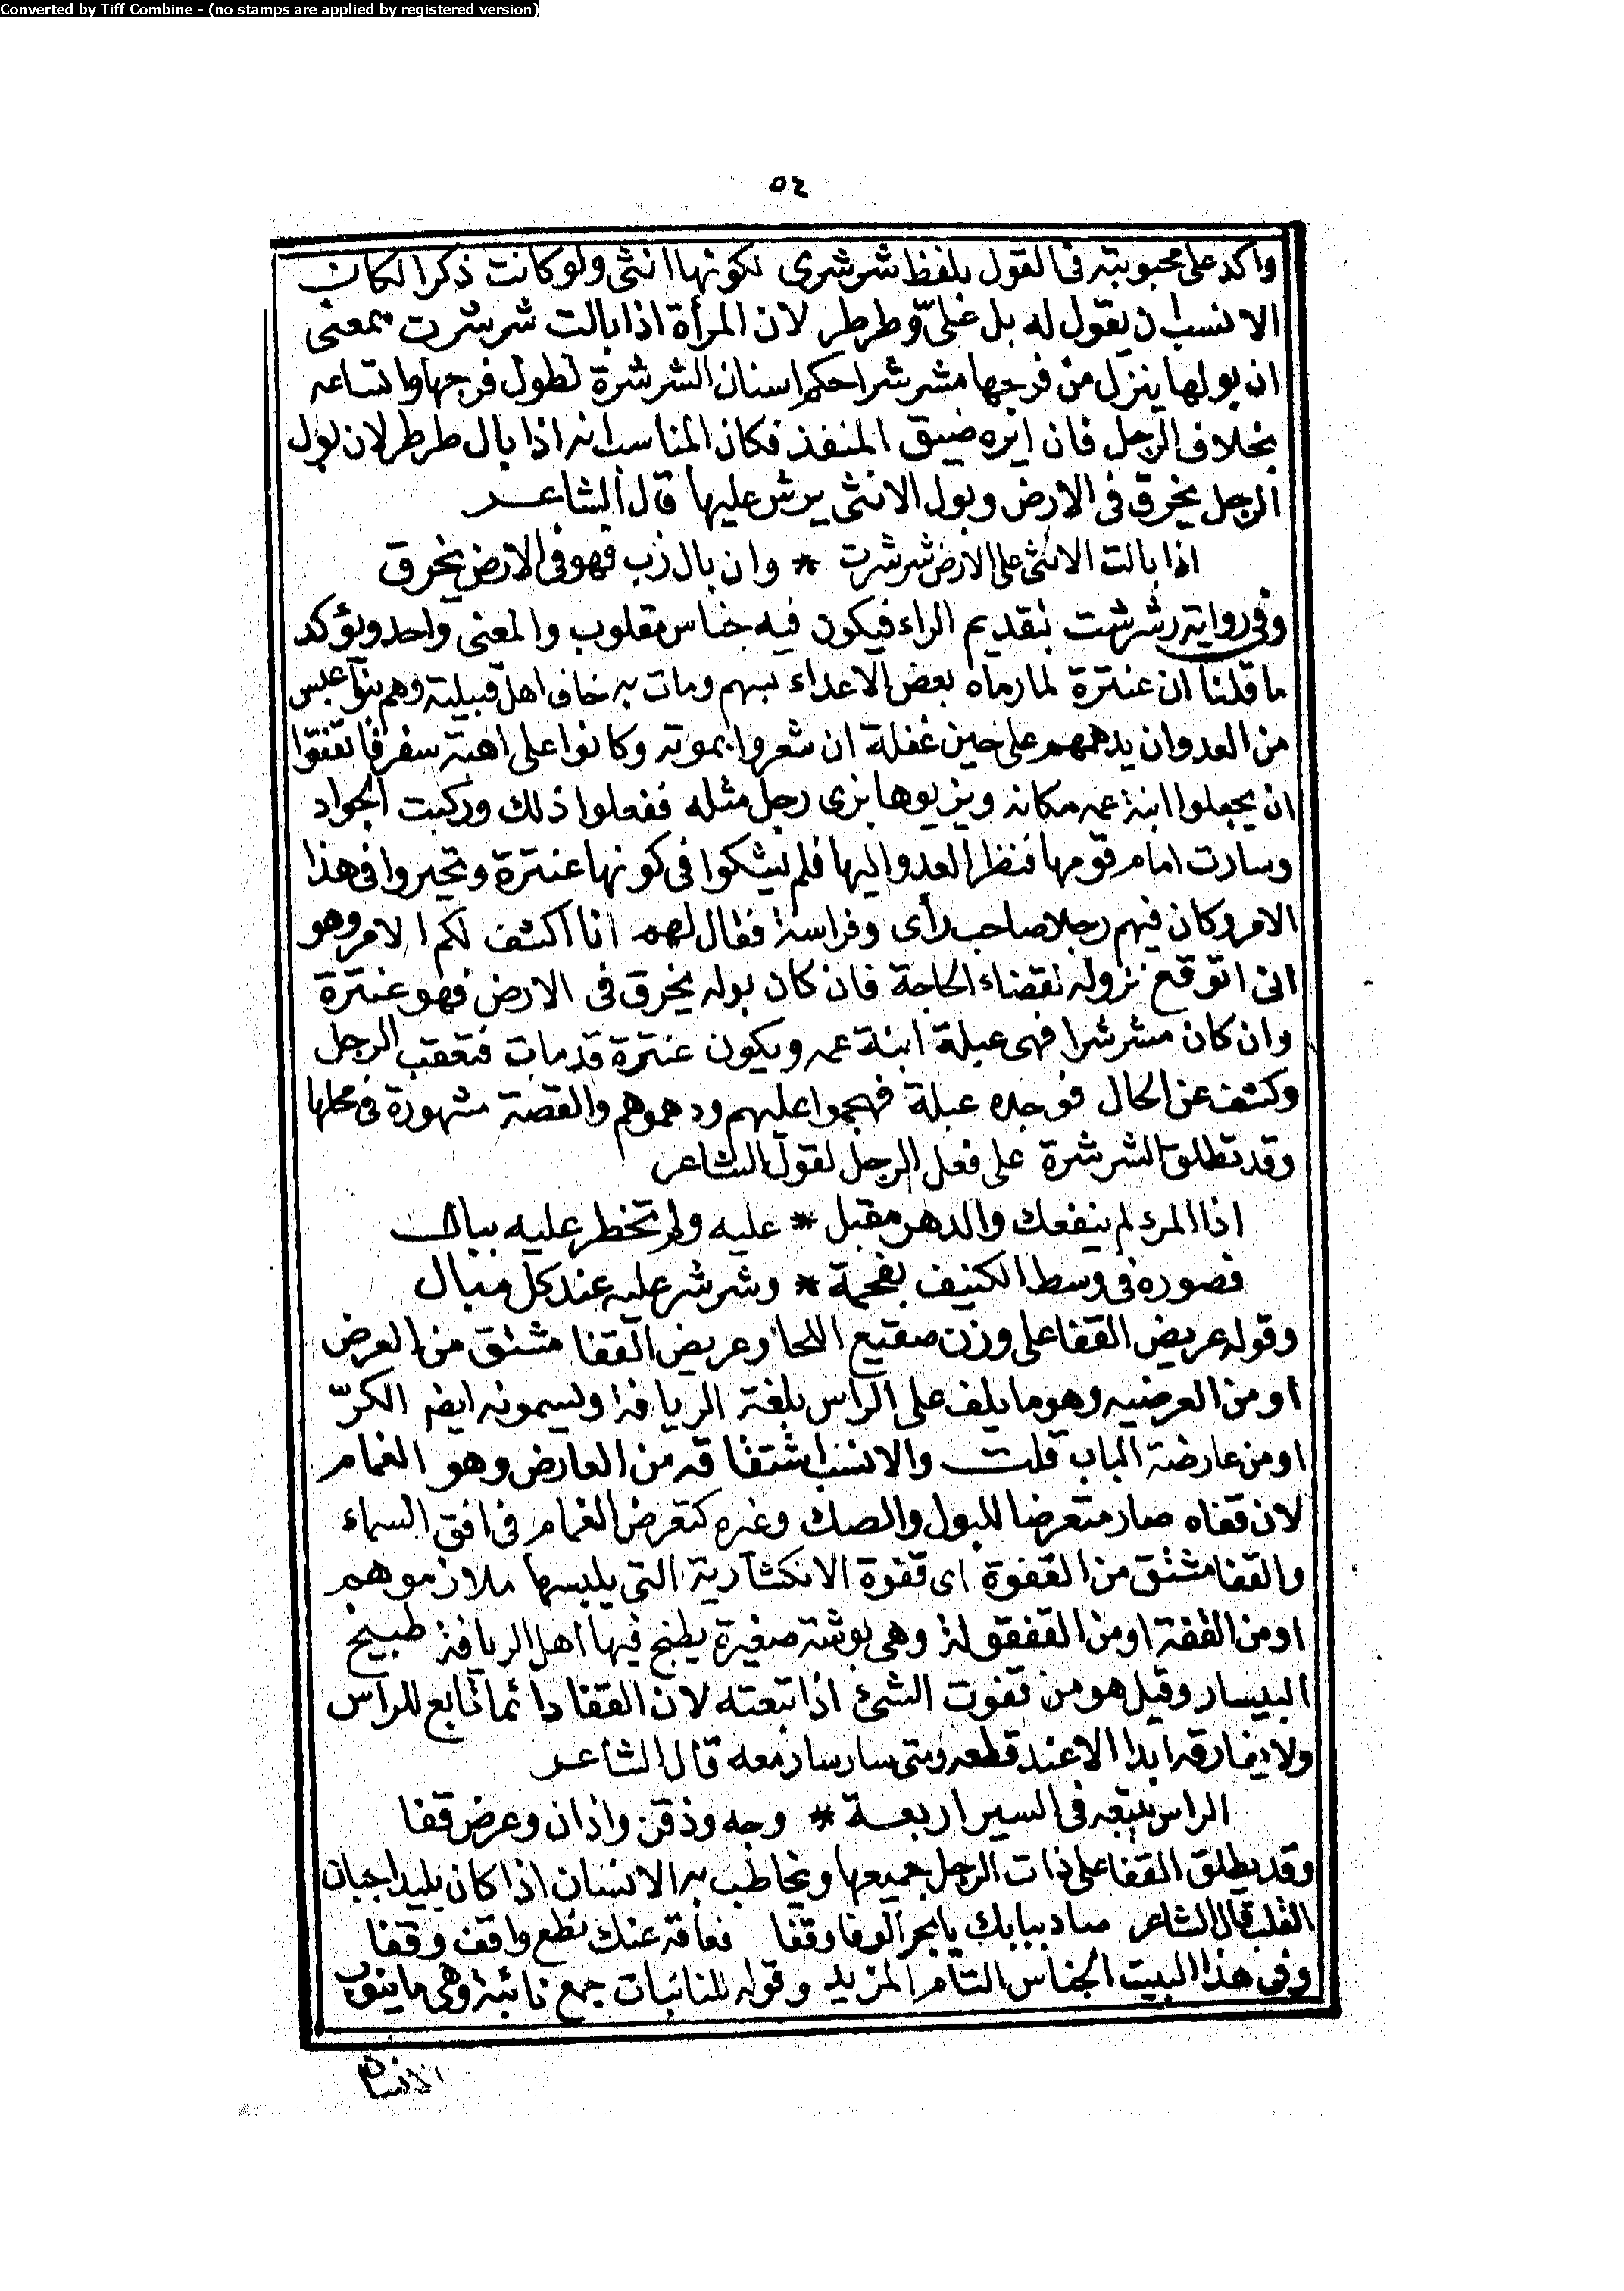 Converted by Tiff Combine - (no stamps are applied by registered version)
٥٤
واكد على محبوبته فى القول بلفظ شرشرى لكونها انثى ولو كانت ذكرا لكان
الانسب ان يقول له بل علىّ وطرطر لان المرأة اذا بالت شرشرت بمعنى
ان بولها ينزل من فرجها مشرشرا حكم اسنان الشرشرة لطول فرجها واتساعه
بخلاف الرجل فان ايره ضيق المنفذ فكان المناسب انه اذا بال طرطر لان بول
الرجل يخرق فى الارض وبول الانثى يرش عليها قال الشاعر
اذا بالت الانثى على الارض شرشرت * وان بال زب فهو فى الارض يخرق
وفى رواية رشرشت بتقديم الراء فيكون فيه جناس مقلوب والمعنى واحد ويؤكد
ما قلنا ان عنترة لما رماه بعض الاعداء بسهم ومات به خاف اهل قبيلته وهم بنو عبس
من العدو ان يدهمهم على حين غفلة ان شعروا بموته وكانوا على اهبة سفر فاتفقوا
ان يجعلوا ابنة عمه مكانه ويزيوها بزى رجل مثله ففعلوا ذلك وركبت الجواد
وسارت امام قومها فنظر العدو اليها فلم يشكوا فى كونها عنترة وتحيروا فى هذا
الامر وكان فيهم رجلا صاحب رأى وفراسة فقال لهم انا اكشف لكم الامر وهو
انى اتوقع نزوله لقضاء الحاجة فان كان بوله يخرق فى الارض فهو عنترة
وان كان مشرشرا فهى عبلة ابنة عمه ويكون عنترة قد مات فتعقب الرجل
وكشف عن الحال فوجده عبلة فهجموا عليهم ودهموهم والقصة مشهورة فى محلها
وقد تطلق الشرشرة على فعل الرجل لقول الشاعر
اذا المرء لم ينفعك والدهر مقبل * عليه ولم تخطر عليه ببال
فصوره فى وسط الكنيف بفحمة * وشرشر عليه عند كل مبال
وقوله عريض القفا على وزن صقيع اللحا وعريض القفا مشتق من العرض
او من العرضيه وهو ما يلف على الراس بلغة الريافة ويسمونه ايضا الكرّ
او من عارضة الباب قلت والانسب اشتقاقه من العارض وهو الغمام
لان قفاه صار متعرضا للبول والصك وغره كتعرض الغمام فى افق السماء
والقفا مشتق من القفوة اى قفوة الانكشارية التى يلبسها ملازموهم
او من القفة او من القفقولة وهى بوشة صغيرة يطبخ فيها اهل الريافة طبيخ
البيسار وقيل هو من قفوت الشئ اذا تبعته لان القفا دائما تابع للراس
ولا يفارقه ابدا الا عند قطعه ومتى سار سار معه قال الشاعر
الراس يتبعه فى السير اربعة * وجه وذقن واذان وعرض قفا
وقد يطلق القفا على ذات الرجل جميعها ويخاطب به الانسان اذا كان بليدا جبان
القلب قال الشاعر صاد ببابك يا بحر الوفا وقفا فعاقه عنك نطع واقف وقفا
وفى هذا البيت الجناس التام المزيد وقوله للنائبات جمع نائبة وهى ما ينوب
الانسان